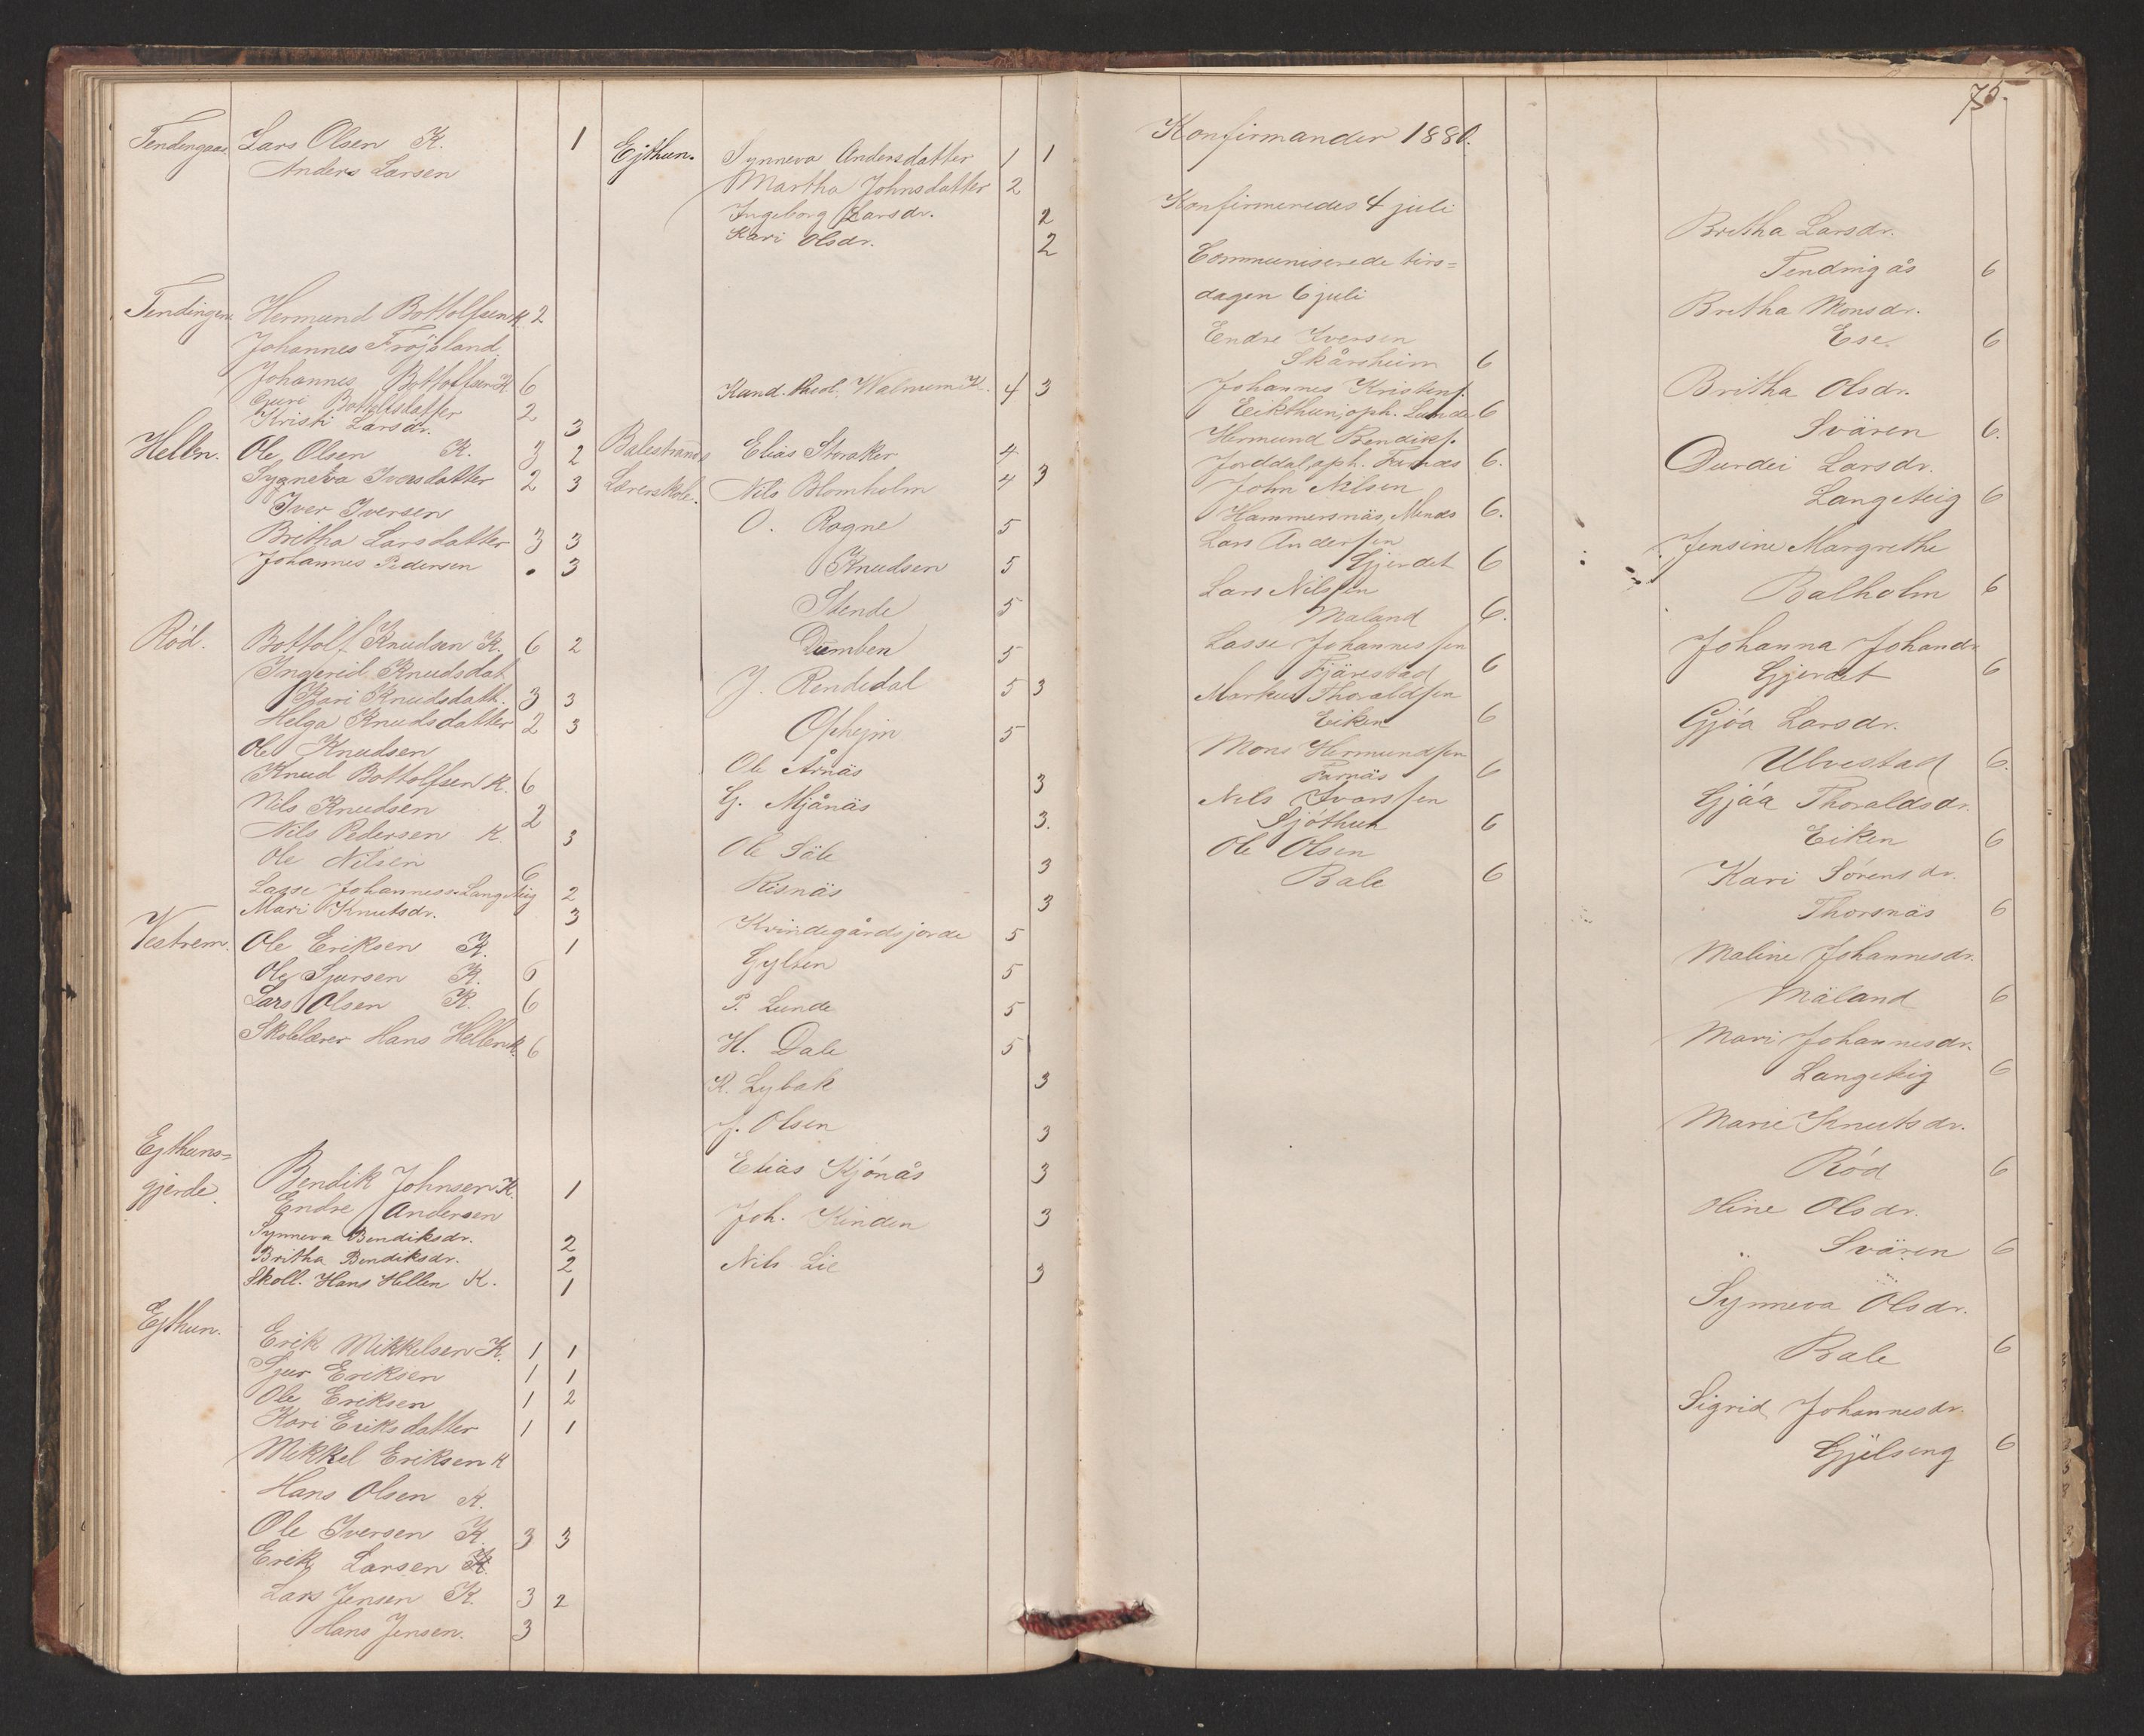 Tendingaas Lars Olsen K. 1
Anders Larsen
Tendingen Hermund Bottolfsen K. 2
Johannes Fröjsland
Johannes Bottolfsen K 6
Guri Bottolfsdatter 2
Kristi Larsdr. 3
Helln. Ole Olsen K. 3 2
Synneva Iversdatter 2 3
Iver Iversen
Britha Larsdatter 3 3
Johannes Pedersen . 3
Röd. Bottolf Knudsen K. 6 2
Ingerid Knudsdat
Kari Knudsdatt. 3 3
Helga Knudsdatter 2 3
Ole Knudsen
Knud Bottolfsen K. 6
Nils Knudsen 2
Nils Pedersen K. 3
Ole Nilsen 6
Lasse Johanness. Langeteig 2
Mari Knutsdr. 3
Vestrem. Ole Eriksen K. 1
Ole Sjursen K. 6
Lars Olsen K. 6
Skolelærer Hans Hellen K. 6
Ejthuns=
gjerde. Bendik Johnsen K. 1
Endre Andersen
Synneva Bendiksdr. 2
Britha Bendiksdr. 2
Skoll. Hans Hellen K. 1
Ejthun.
Erik Mikkelsen K. 1 1
Sjur Eriksen 1 1
Ole Eriksen 1 2
Kari Eriksdatter 1 1
Mikkel Eriksen K
Hans Olsen K.
Ole Iversen K. 3 3
Erik Larsen K
Lars Jensen K. 3 2
Hans Jensen. 3
Ejthun. Synneva Andersdatter 1 1
Martha Johnsdatter 2
Ingeborg Larsdr. 2
Kari Olsdr. 2
Kand. theol. Walnum K. 4 3
Balestrands Elias Storaker 4
Lærerskole. Nils Blomholm 4 3
O. Rogne 5
Knudsen 5
Stende 5
Dumben 5
J. Rendedal 5 3
Opheim 5
Ole Årnäs 3
G. Mjånäs 3.
Ole Säle 3
Risnäs 3
Kvindegårdsjorde 5
Gylsen 5
P. Lunde 5
H. Dale 5
R. Lybak 3
J. Olsen 3
Elias Kjönås 3
Joh. Kinden 3
Nils Lie 3
75.
Konfirmander 1880.
Konfirmeredes 4 juli
Communiserede tirs=
dagen 6 juli
Endre Iversen
Skårsheim 6
Johannes Kristens.
Eikthun, oph. Lunde 6
Hermund Bendiks.
Jorddal, oph. Farnäs 6.
John Nilsen
Hammersnäs, Munds 6.
Lars Andersen
Gjerdet 6
Lars Nilssen
Maland 6.
Lasse Johannessen
Fjärestad 6
Markus Thoraldsen
Eiken 6
Mons Hermundsen
Farnäs 6
Nils Ivarssen
Sjöthun 6
Ole Olsen
Bale 6
Britha Larsdr.
Tendingås 6
Britha Monsdr.
Ese. 6
Britha Olsdr.
Svären 6.
Durdei Larsdr.
Langeteig 6
Jensine Margrethe
Balholm 6
Johanna Johandr
Gjerdet 6
Gjöa Larsdr.
Ulvestad 6.
Gjöa Thoraldsdr.
Eiken 6
Kari Sörensdr.
Thorsnäs 6
Maline Johannesdr.
Mäland 6
Mari Johannesdr.
Langeteig 6
Marie Knutsdr.
Röd 6
Oline Olsdr.
Svären 6
Synneva Olsdr.
Bale 6
Sigrid Johannesdr.
Gjelseng 6